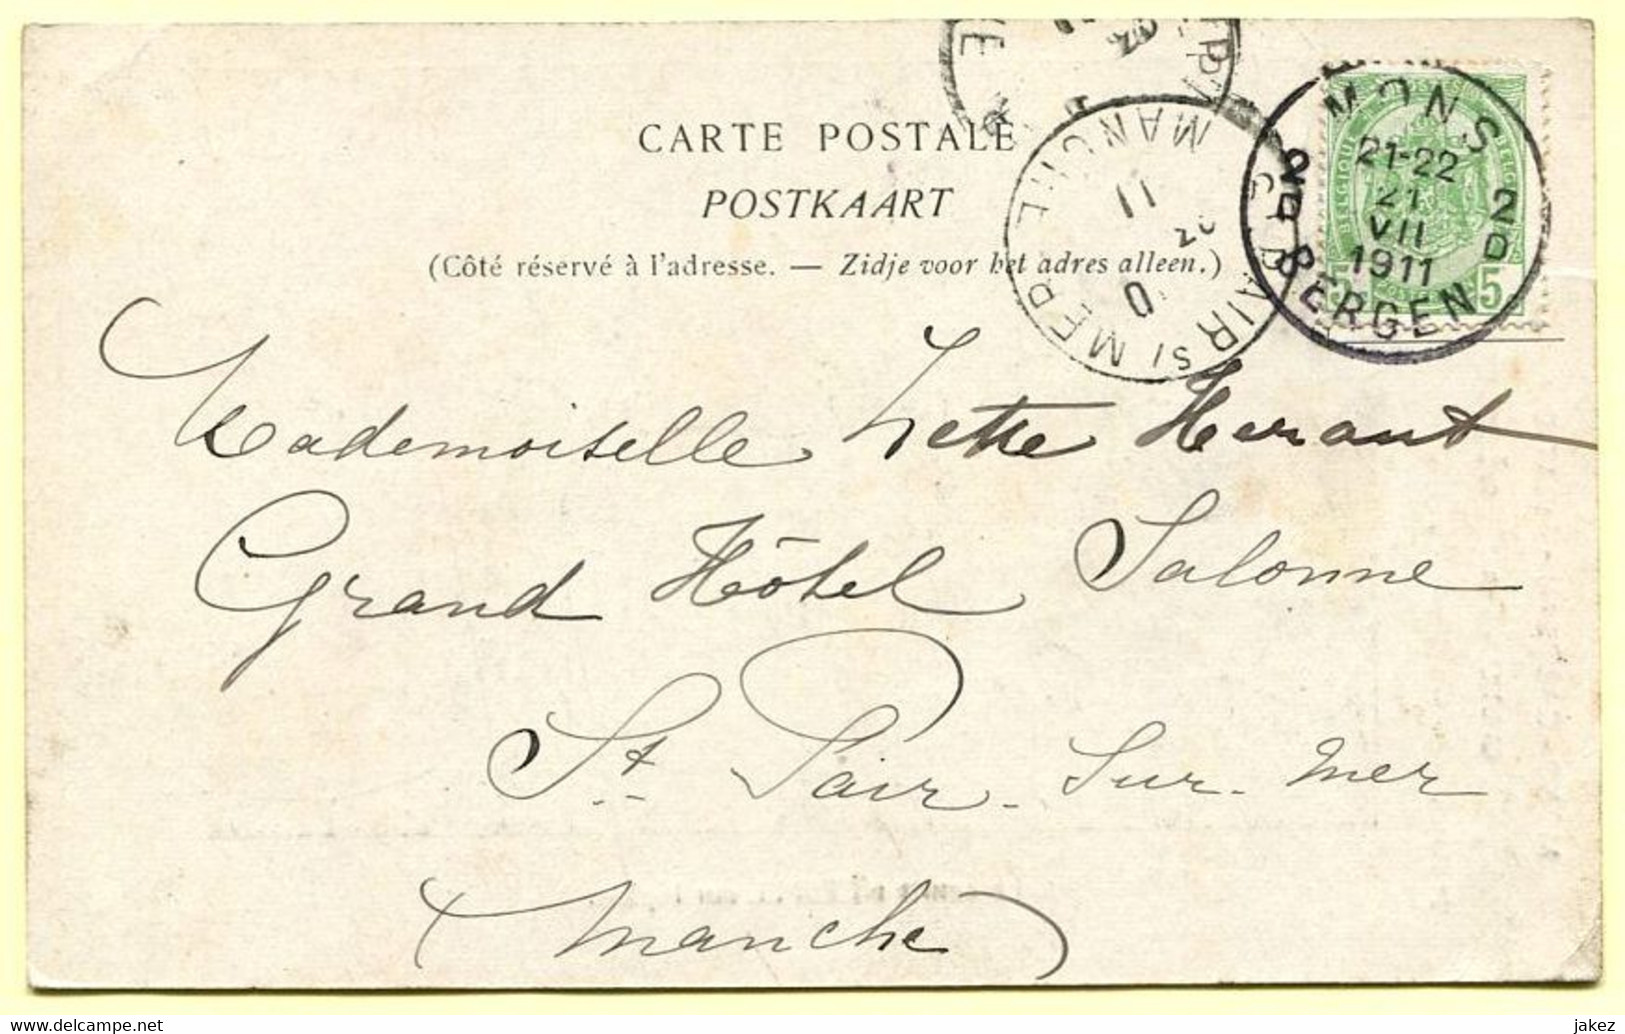 CARTE POSTALE
POSTKAART
(Côté réservé à l'adresse. — Zidje voor het adres alleen.)
MONS
21-22
21
VII
1911
BERGEN
2D
2D
BELGIQUE
5
5
MANCHE
11
Mademoiselle Zette Herant
Grand Hôtel Salonne
St. Pair-Sur-Mer
(Manche)
jakez